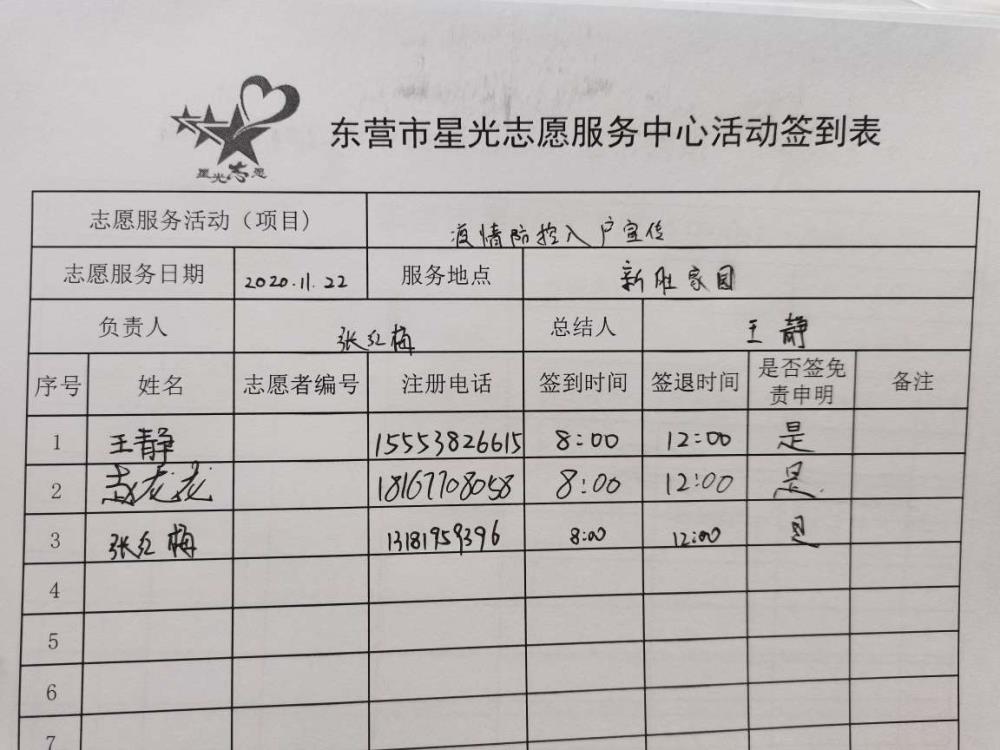 星光志愿
东营市星光志愿服务中心活动签到表
志愿服务活动（项目） 疫情防控入户宣传
志愿服务日期 2020.11.22 服务地点 新胜家园
负责人 张红梅 总结人 王静
序号 姓名 志愿者编号 注册电话 签到时间 签退时间 是否签免责申明 备注
1 王静 15553826615 8:00 12:00 是
2 18167708058 8:00 12:00 是.
3 张红梅 13181959396 8:00 12:00 是
4
5
6
7